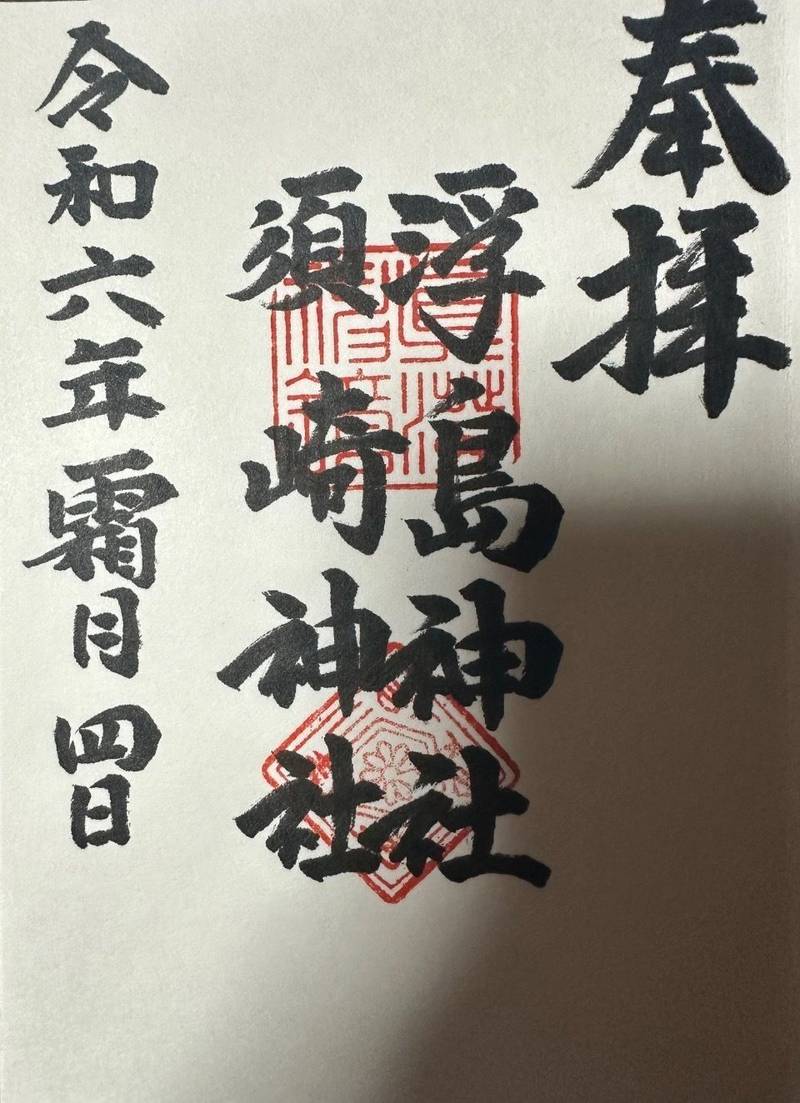 奉拝
浮島神社
須崎神社
令和六年霜月四日